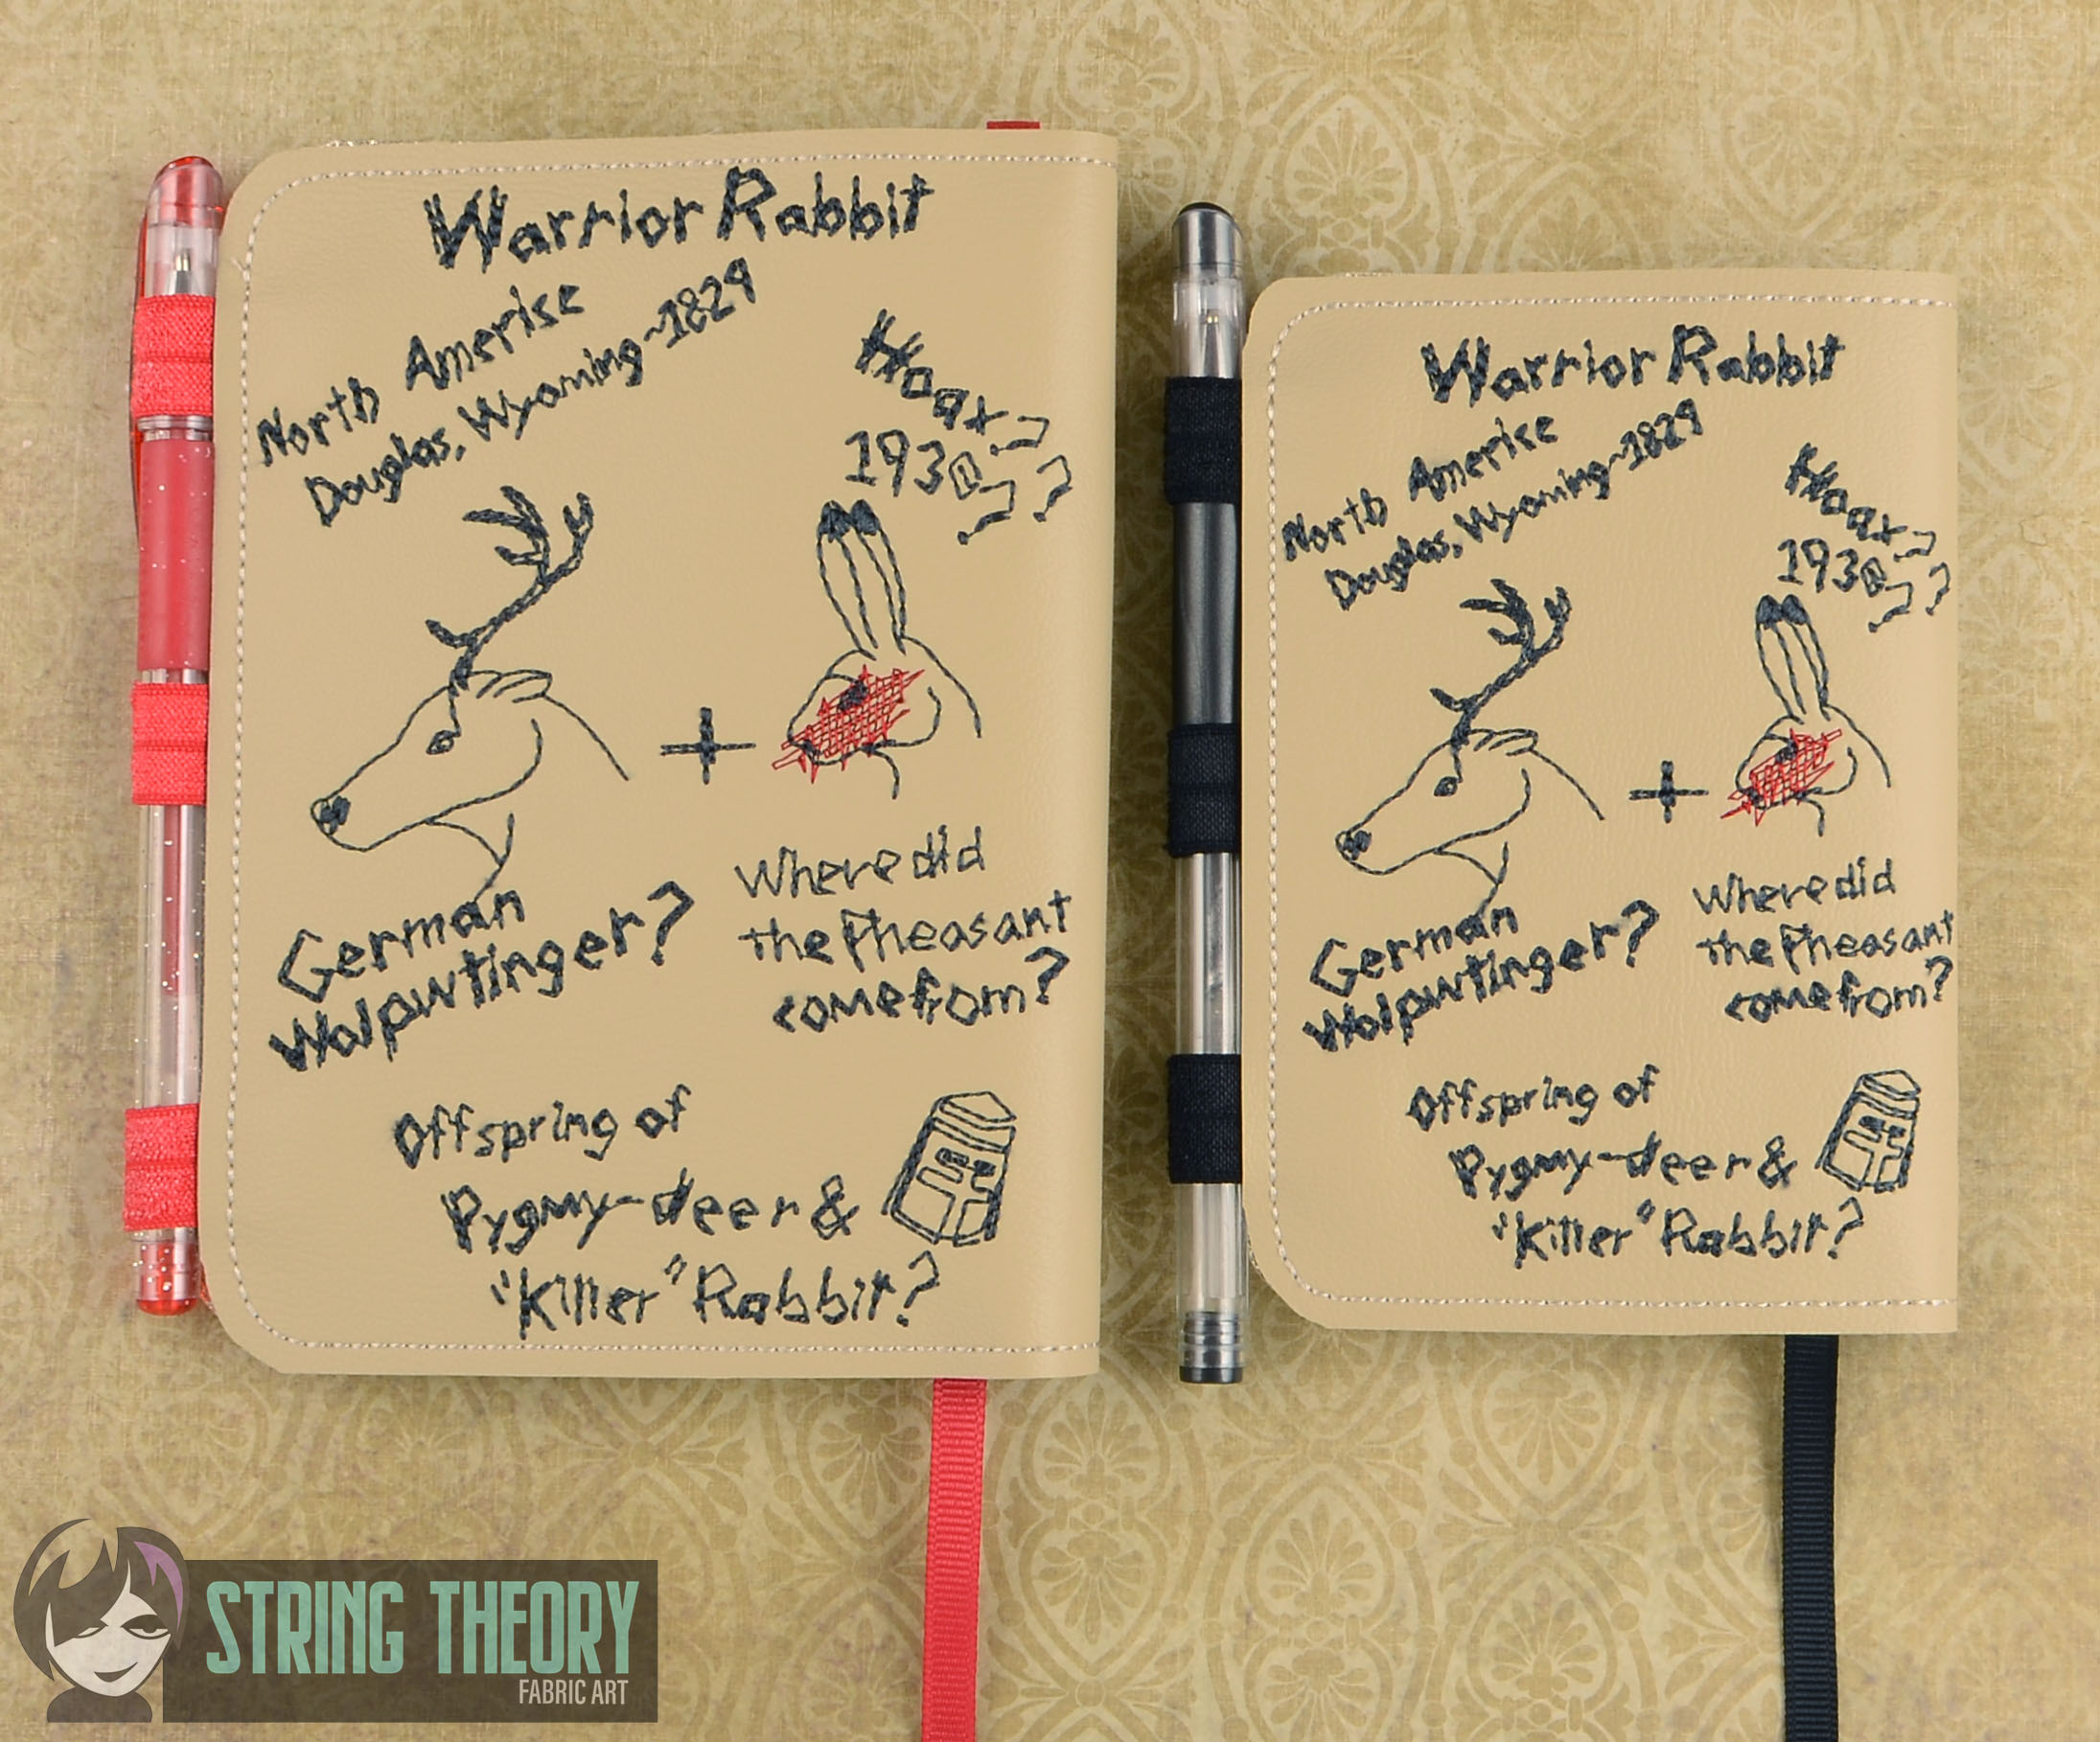 Warrior Rabbit
North Amerise
Douglas, Wyoming~1829
Hoax
1930
!!!
German
Wolpurtinger?
Where did
the Pheasant
come from?
Offspring of
Pygmy-deer &
"Killer" Rabbit?
Warrior Rabbit
North Amerise
Douglas, Wyoming~1829
Hoax
1930
!!!
German
Wolpurtinger?
Where did
the Pheasant
come from?
Offspring of
Pygmy-deer &
"Killer" Rabbit?
STRING THEORY
FABRIC ART